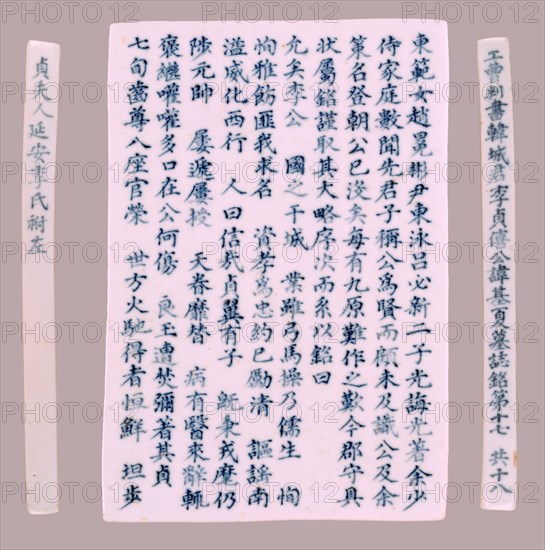 工曹判書韓城君李貞僖公諱基夏墓誌銘第十七 共十八
東範女趙晃彬尹東泳呂必新二子光誨光著余少
侍家庭數聞先君子稱公為賢而顧未及識公及余
策名登朝公已沒矣每有九原難作之歎今郡守具
狀屬銘謹取其大略序次而系以銘曰
允矣李公 國之干城 業雖弓馬操乃儒生 恂
恂雅飭匪我求名 資孝為忠約已勵清 謳謠南
溢威化西行 人曰信哉貞翼有子 旣秉戎麾仍
陟元帥 屢遞屢授 天眷靡替 病有醫來辭輒
褒繼嚾嚾多口在公何傷 良玉遭焚彌著其貞
七旬齒尊八座官榮 世方火馳得者恒鮮 坦步
貞夫人延安李氏祔左